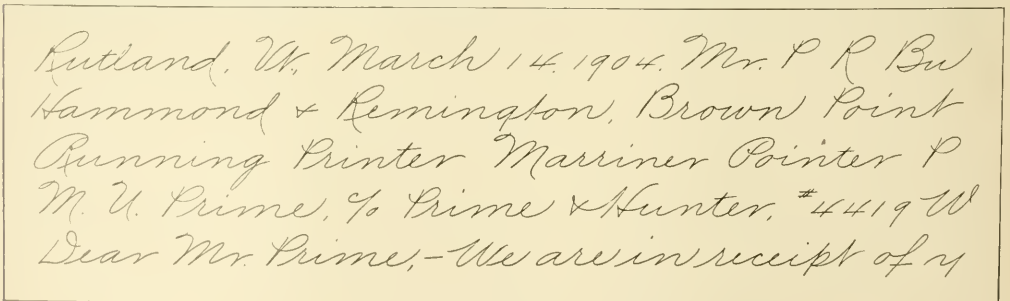 Rutland, Vt., March 14, 1904. Mr. P R Bu
Hammond & Remington, Brown Point
Running Printer Marriner Pointer P
M. U. Prime, c/o Prime & Hunter, #4419 W
Dear Mr. Prime,- We are in receipt of y